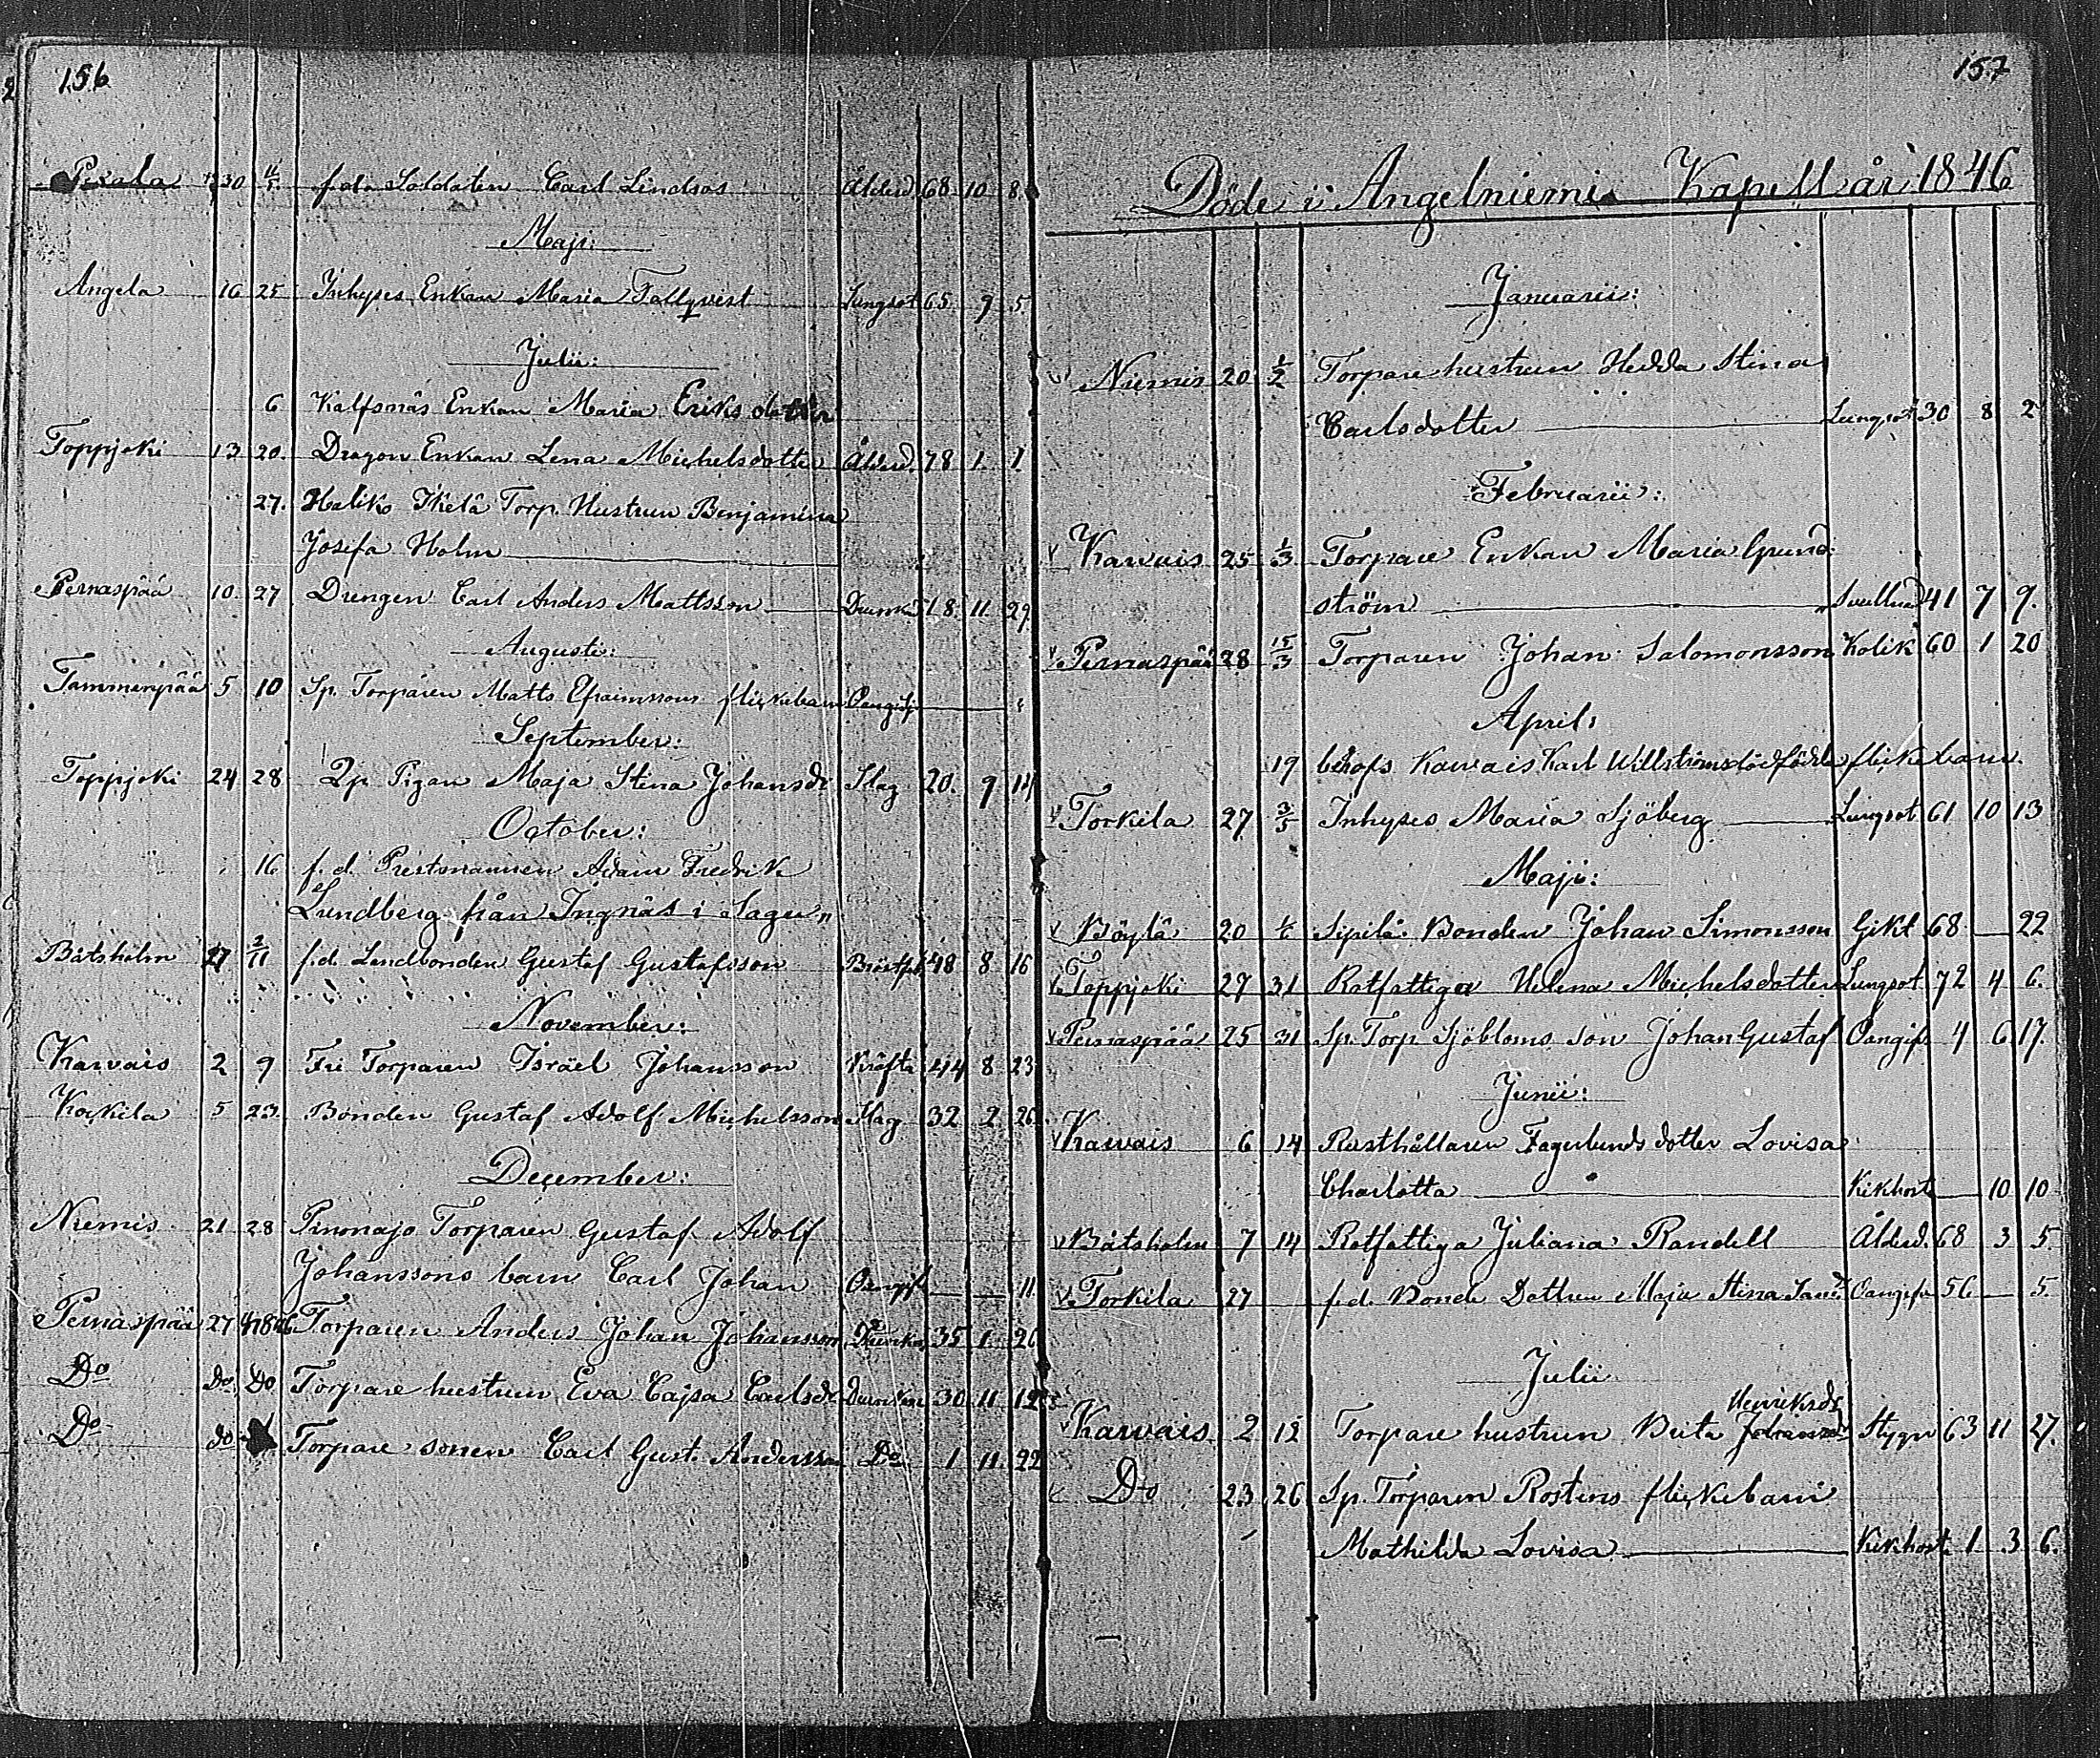 156
Pixala 30 11/5 f.d. Soldaten Carl Lindroos Ålderd. 68 10 8
Maji:
Angela 16 25 Inhyses Enkan Maria Tallqvist Lungsot 65 9 5
Julii:
6 Kalfsnäs Enkan Maria Eriksdotter
Toppjoki 13 20. Dragon Enkan Lena Michelsdotter Ålderd. 78 1 1
27. Haliko Ikelä Torp. Hustrun Benjamina
Josefa Holm
Pernaspää 10 27 Drengen Carl Anders Mattsson Drunkn. 18 11 29.
Augusti:
Tammenpää 5 10 Sp. Torparen Matts Efraimssons flickebarn Oangif.
September:
Toppjoki 24 28 Qp Pigan Maja Stina Johansdr Slag 20. 9 14
October:
16 f.d. Prestmannen Adam Fredrik
Lundberg från Ingnäs i Sagu
Båtsholm 27 2/11 f.d. Landbonden Gustaf Gustafsson Bröstfeb 48 8 16
November:
Karvais 2 9 Fri Torparen Israël Johansson Kräfta 44 8 23
Kokkila 5 23. Bonden Gustaf Adolf Michelsson Slag 32 2 26
December:
Niemis 21 28 Torparen Gustaf Adolf
Johanssons barn Carl Johan Oangif. 11
Pernaspää 27 Torparen Anders Johan Johansson Drunkn. 35 1 26
Do Do Do Torpare hustrun Eva Cajsa Carlsdr Drunkn. 30 11 12
Do do Torpare sonen Carl Gust. Andersson Do 1 11 22
157
Döde i Angelniemi Kapell år 1846
Januarii:
Niemis 20 1/2 Torpare hustrun Hedda Stina
Carlsdotter Lungsot 30 8 2
Februarii:
Karvais 25 1/3 Torpare Enkan Maria Grund-
ström Svullnad 41 7 9.
Pernaspää 28 15/3 Torparen Johan Salomonsson Kolik 60 1 20
April:
19 Karvais Karl Willströms dödfödda flickebarn.
Torkila 27 3/5 Inhyses Maria Sjöberg Lungsot 61 10 13
Maji:
Böylä 20 1/6 Sipilä Bonden Johan Simonsson Gikt 68 — 22
Toppjoki 27 31 Rotfattiga Helena Michelsdotter Lungsot 72 4 6.
Pernaspää 25 31 Sp. Torp. Sjöbloms son Johan Gustaf Oangif. 4 6 17.
Junii:
Karvais 6 14 Rusthållaren Fagerlunds dotter Lovisa
Charlotta Kikhost 10 10
Båtsholm 7 14 Rotfattiga Juliana Randell Ålderd. 68 3 5.
Torkila 27 f.d. Bonde Dottren Maja Stina Oangifv. 56 — 5.
Julii
Henriksdr
Karvais 2 12 Torpare hustrun Brita Johansdr Stygn 63 11 27.
Do 23 26 Sp. Torparen Rostens flickebarn
Mathilda Lovisa Kikhost 1 3 6.